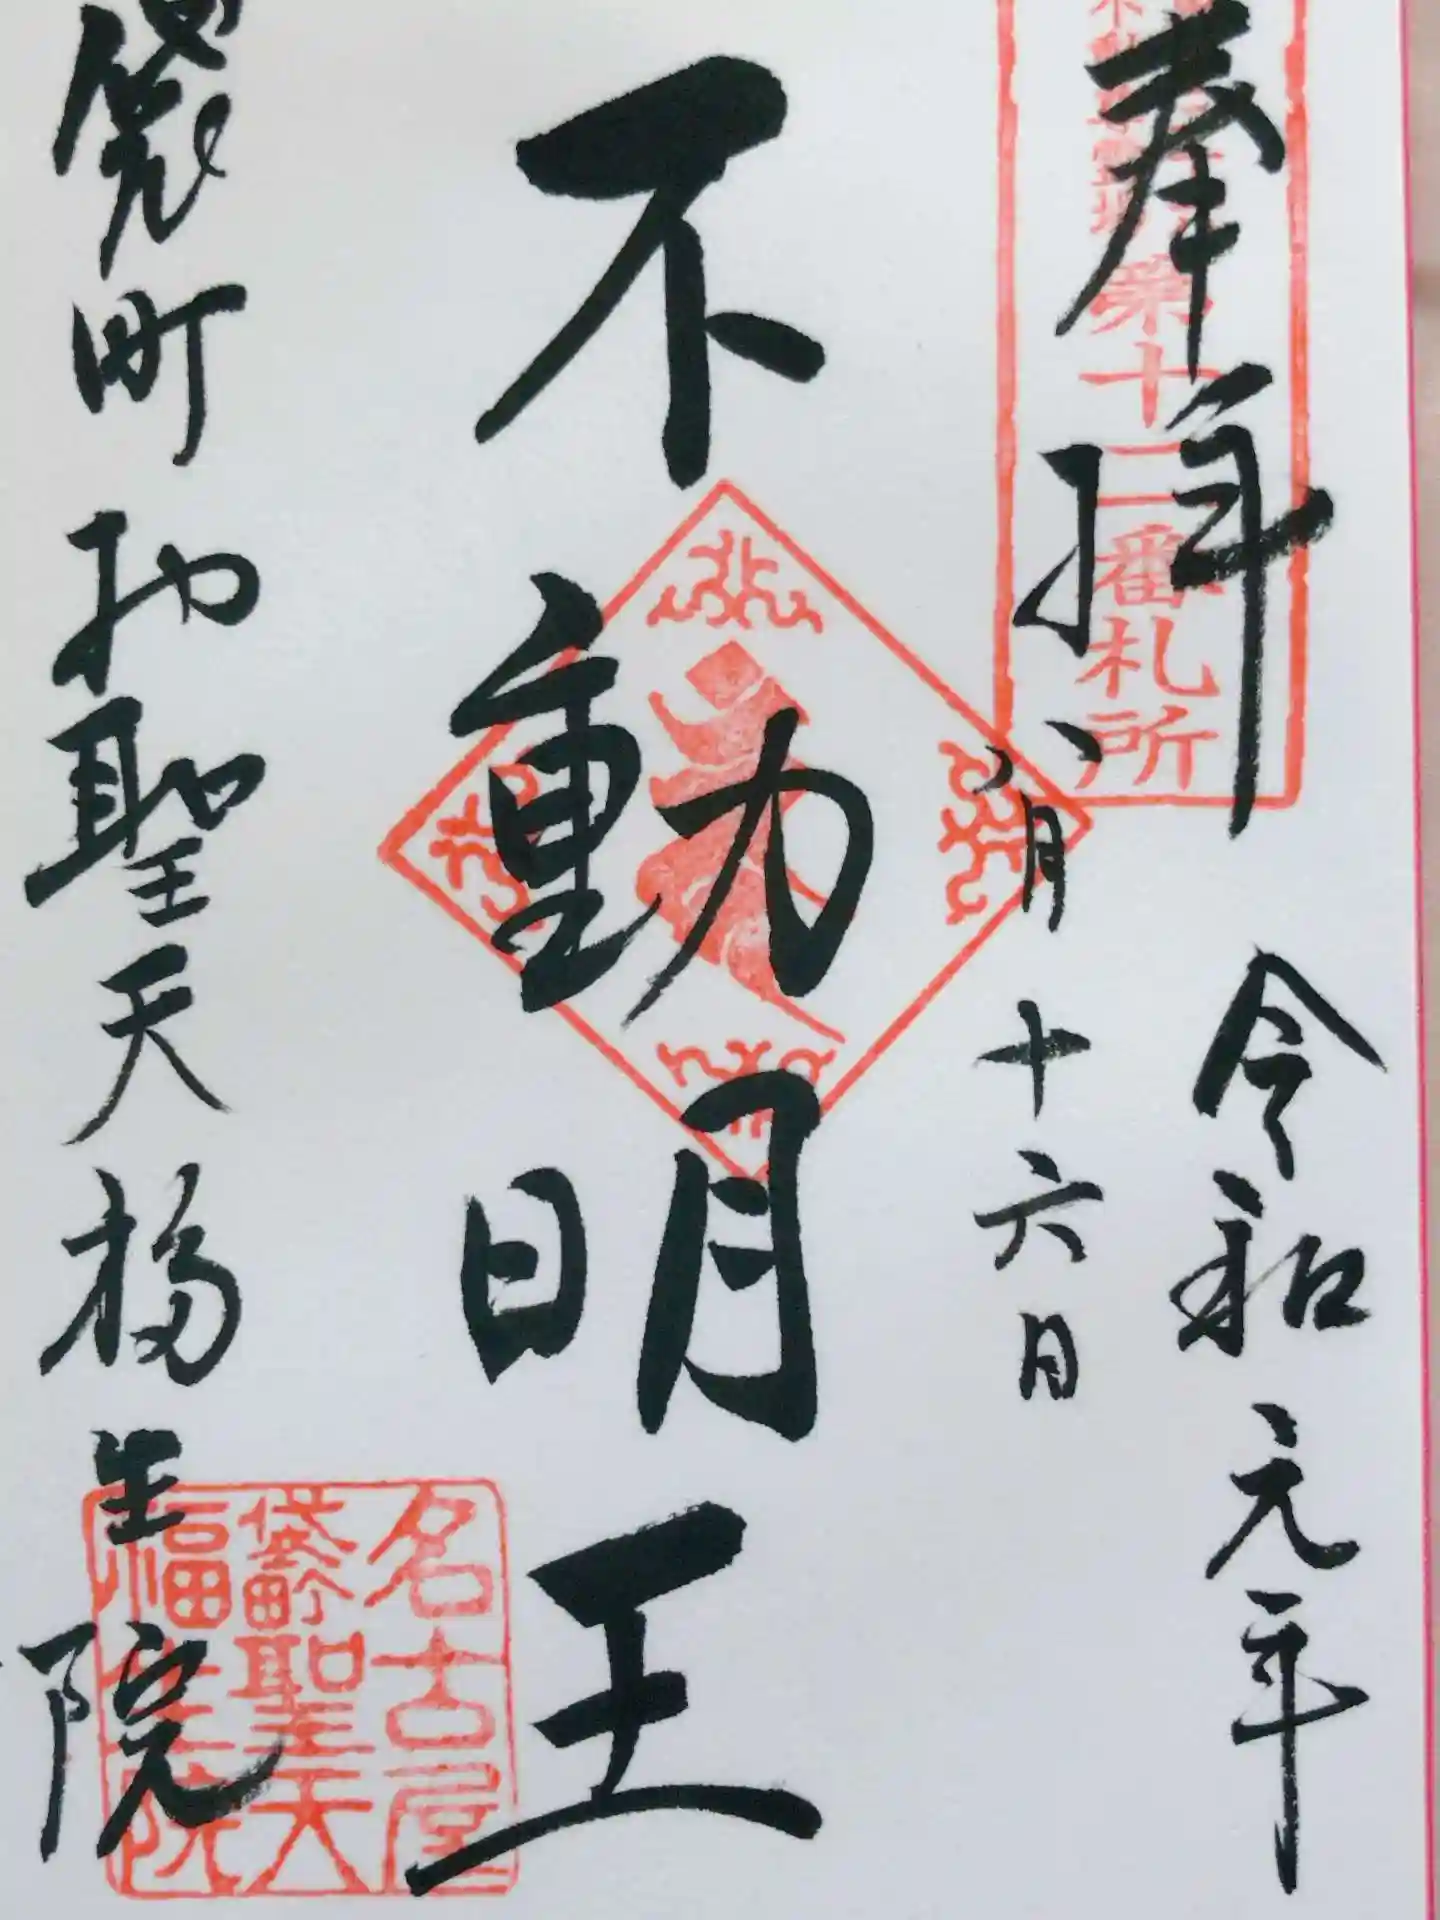 奉拝
第十二番札所
令和元年
八月十六日
不動明王
袋町お聖天福生院
名古屋
袋町聖天
福生院